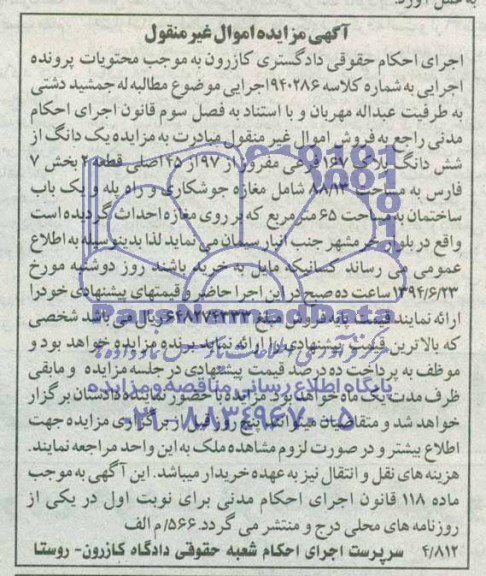 آگهی مزایده اموال غیر منقول
اجرای احکام حقوقی دادگستری کازرون به موجب محتویات پرونده
اجرایی به شماره کلاسه ۹۴۰۲۸۶اجرایی موضوع مطالبه له جمشید دشتی
به طرفیت عبداله مهربان و با استناد به فصل سوم قانون اجرای احکام
مدنی راجع به فروش اموال غیر منقول مبادرت به مزایده یک دانگ از
شش دانگ پلاک ۱۶۷ فرعی مفروز از ۹۷ از ۴۵ اصلی قطعه ۲ بخش ۷
فارس به مساحت ۸۸/۱۳ شامل مغازه جوشکاری و راه پله و یک باب
ساختمان به مساحت ۶۵ متر مربع که بر روی مغازه احداث گردیده است
واقع در بلوار خرمشهر جنب انبار سیمان می نماید لذا بدینوسیله به اطلاع
عمومی می رساند کسانیکه مایل به خرید باشند روز دوشنبه مورخ
۱۳۹۴/۶/۲۳ ساعت ده صبح در این اجرا حاضر و قیمتهای پیشنهادی خود را
ارائه نمایند قیمت پایه فروش مبلغ ۶۴۸۲۷۴۲۳۳ ریال می باشد شخصی
که بالاترین قیمت پیشنهادی را ارائه نماید برنده مزایده خواهد بود و
موظف به پرداخت ده درصد قیمت پیشنهادی در جلسه مزایده و مابقی
ظرف مدت یک ماه خواهد بود. مزایده با حضور نماینده دادستان برگزار
خواهد شد و متقاضیان میتوانند پنج روز قبل از برگزاری مزایده جهت
اطلاع بیشتر و در صورت لزوم مشاهده ملک به این واحد مراجعه نمایند.
هزینه های نقل و انتقال نیز به عهده خریدار میباشد. این آگهی به موجب
ماده ۱۱۸ قانون اجرای احکام مدنی برای نوبت اول در یکی از
روزنامه های محلی درج و منتشر می گردد.۵۶۶/م الف
۴/۸۱۲ سرپرست اجرای احکام شعبه حقوقی دادگاه کازرون- روستا
ParsNamadData
مرکز فرآوری اطلاعات پارس نماد داده ها
پایگاه اطلاع رسانی مناقصه و مزایده
۰۲۱-۸۸۳۴۹۶۷۰-۵